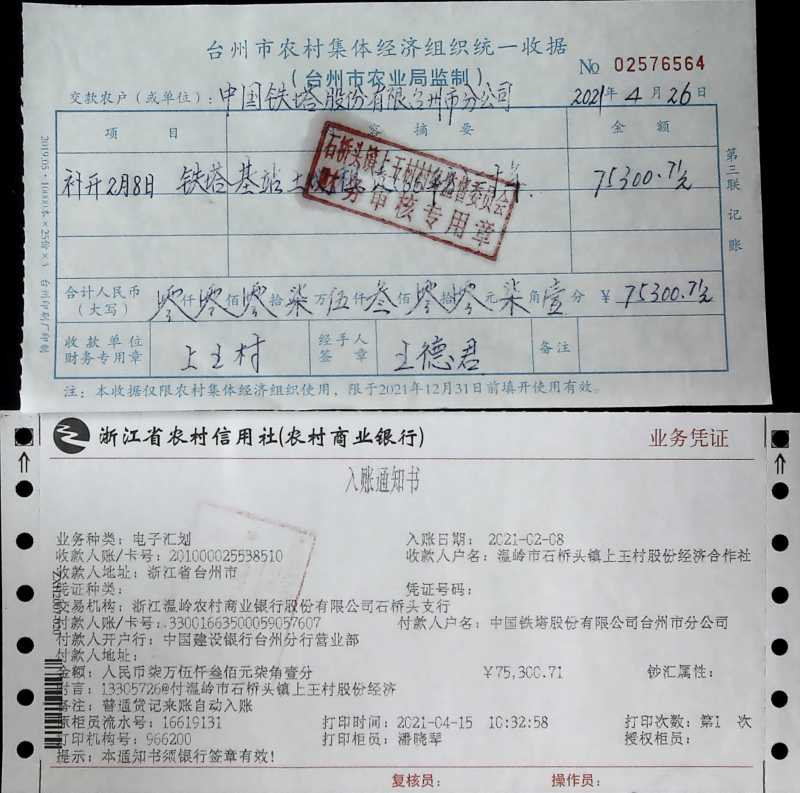 台州市农村集体经济组织统一收据
(台州市农业局监制)
№ 02576564
交款农户(或单位):中国铁塔股份有限台州市分公司
2021年4月26日
项目 内容摘要 金额
补开2月8日 铁塔基站土地 75300.71元
石桥头镇上王村村务监督委员会
财务审核专用章
合计人民币(大写) 零仟零佰零拾柒万伍仟叁佰零拾零元柒角壹分 ¥ 75300.71元
收款单位财务专用章 上王村 经手人签章 王德君 备注
注:本收据仅限农村集体经济组织使用,限于2021年12月31日前填开使用有效。
第三联 记账
2019.05·10000本×25份×3 台州印刷厂印制
浙江省农村信用社(农村商业银行) 业务凭证
入账通知书
业务种类:电子汇划 入账日期:2021-02-08
收款人账/卡号:201000025538510 收款人户名:温岭市石桥头镇上王村股份经济合作社
收款人地址:浙江省台州市
凭证种类: 凭证号码:
交易机构:浙江温岭农村商业银行股份有限公司石桥头支行
付款人账/卡号:33001663500059057607 付款人户名:中国铁塔股份有限公司台州市分公司
付款人开户行:中国建设银行台州分行营业部
付款人地址:
金额:人民币柒万伍仟叁佰元柒角壹分 ¥75,300.71 钞汇属性:
附言:13305726@付温岭市石桥头镇上王村股份经济
备注:普通贷记来账自动入账
原柜员流水号:16619131 打印时间:2021-04-15 10:32:58 打印次数:第1 次
打印机构号:966200 打印柜员:潘晓琴 授权柜员:
提示:本通知书须银行签章有效!
复核员: 操作员: